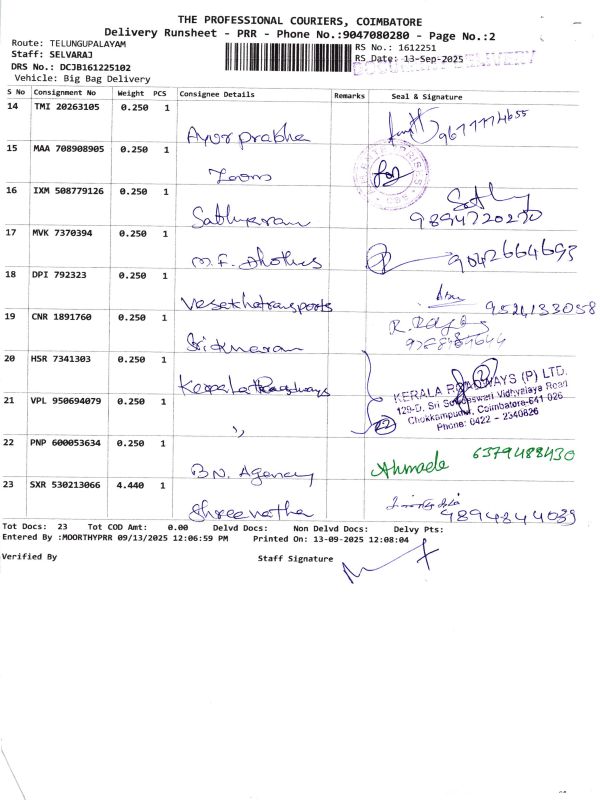 THE PROFESSIONAL COURIERS, COIMBATORE
Delivery Runsheet - PRR - Phone No.:9047080280 - Page No.:2
Route: TELUNGUPALAYAM
RS No.: 1612251
Staff: SELVARAJ
RS Date: 13-Sep-2025
DRS No.: DCJB161225102
DOCUMENT DELIVERY
Vehicle: Big Bag Delivery
S No Consignment No Weight PCS Consignee Details Remarks Seal & Signature
14 TMI 20263105 0.250 1
Ayurprabha 9677774655
15 MAA 708908905 0.250 1
Zoom
16 IXM 508779126 0.250 1
9894720270
17 MVK 7370394 0.250 1
M.F. 9042664693
18 DPI 792323 0.250 1
Vesakhatransports 9524133058
19 CNR 1891760 0.250 1
20 HSR 7341303 0.250 1
Kerala Roadways
KERALA ROADWAYS (P) LTD.
21 VPL 950694079 0.250 1
129-D, Sri Road
Chokkampudur, Coimbatore-641 026
Phone: 0422 - 2340826
,, 22
22 PNP 600053634 0.250 1
B.N. Agency 6379488430
23 SXR 530213066 4.440 1
Shreenatha 9894844039
Tot Docs: 23 Tot COD Amt: 0.00 Delvd Docs: Non Delvd Docs: Delvy Pts:
Entered By :MOORTHYPRR 09/13/2025 12:06:59 PM Printed On: 13-09-2025 12:08:04
Verified By Staff Signature